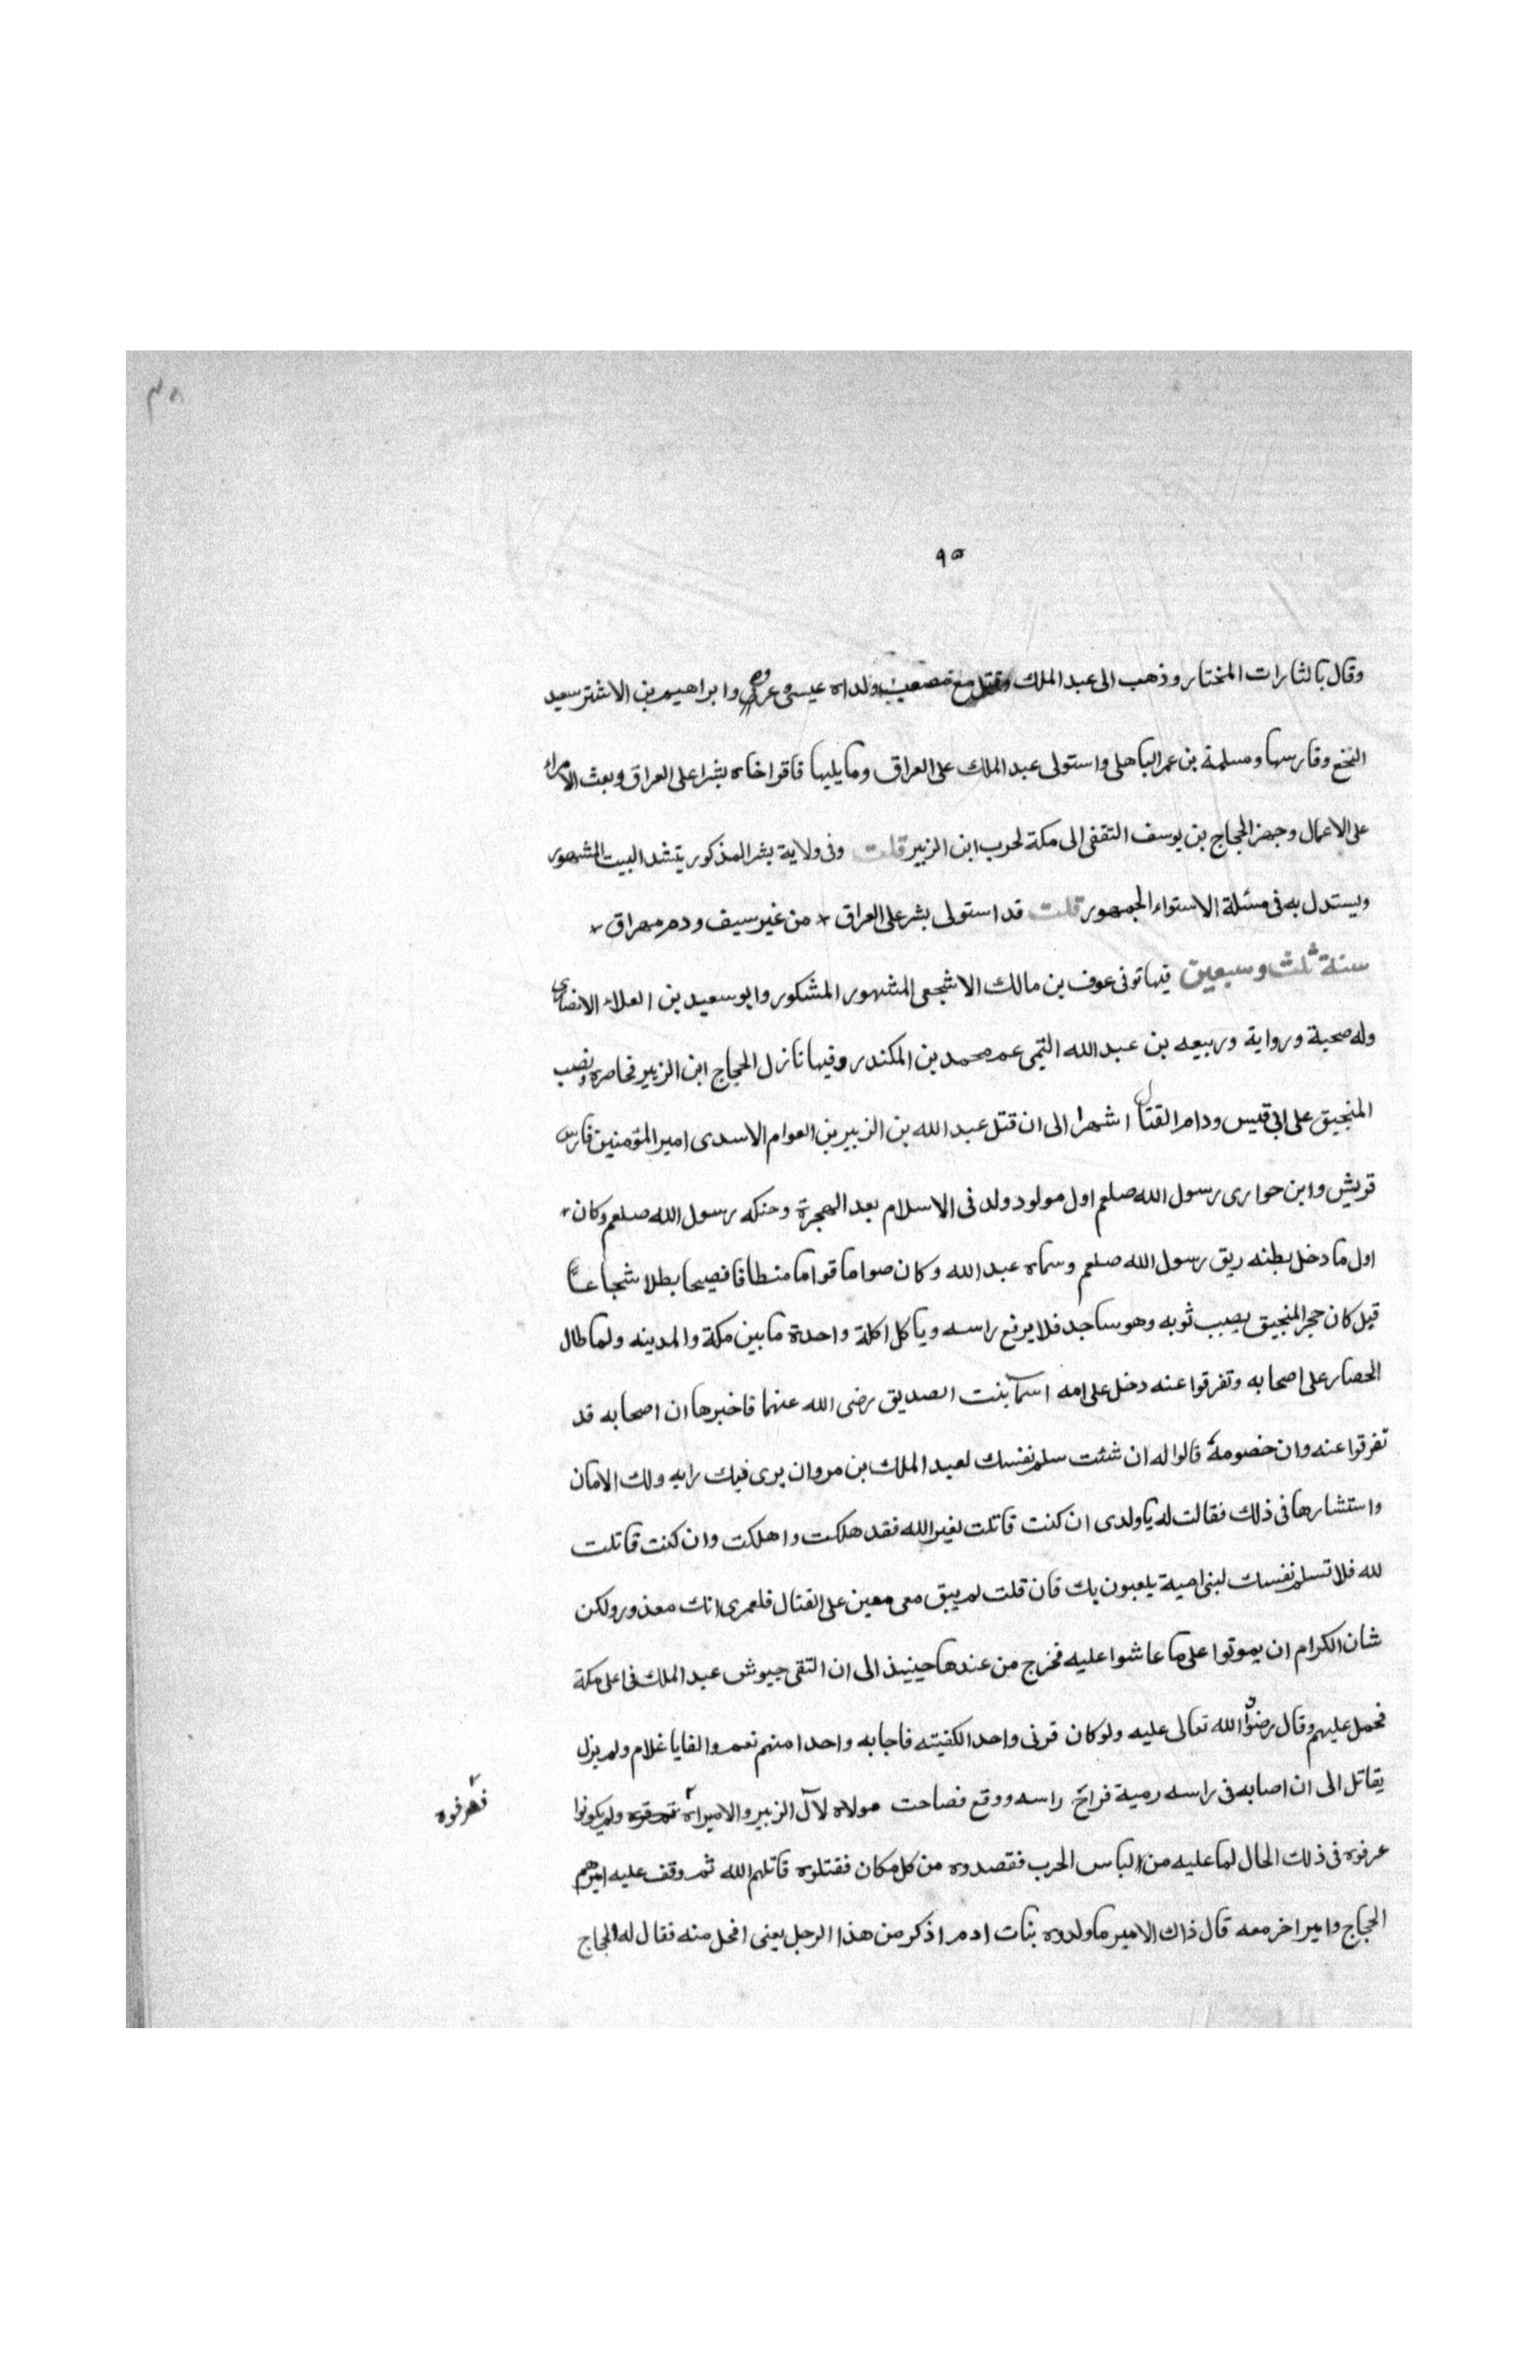 ٩٥
وقال بالثارات المختار وذهب الى عبد الملك وقتل مع مصعب ولداه عيسى وعروه وابراهيم بن الاشتر سعيد
النخع وفارسها ومسلمة بن عمر الباهلى واستولى عبد الملك على العراق وما يليها فاقر اخاه بشرا على العراق وبعث الامراء
على الاعمال وجهز الحجاج بن يوسف الثقفى الى مكة لحرب ابن الزبير قلت وفى ولاية بشر المذكور يتشد البيت المشهور
ويستدل به فى مسئلة الاستواء الجمهور قلت قد استولى بشر على العراق * من غير سيف ودم مهراق *
سنة ثلث وسبعين فيها توفى عوف بن مالك الاشجعى المشهور المشكور وابو سعيد بن العلاء الانصارى
وله صحبة ورواية وربيعه بن عبد الله التيمى عم محمد بن المكندر وفيها نازل الحجاج ابن الزبير فحاصره ونصب
المنجيق على ابى قيس ودام القتال اشهرا الى ان قتل عبد الله بن الزبير بن العوام الاسدى امير المؤمنين فارس
قريش وابن حوارى رسول الله صلعم اول مولود ولد فى الاسلام بعد الهجرة وحنكه رسول الله صلعم وكان *
اول ما دخل بطنه ريق رسول الله صلعم وسماه عبد الله وكان صواما قواما منطاقا فصيحا بطلا شجاعا
قيل كان حجر المنجيق يصيب ثوبه وهو ساجد فلا يرفع راسه وياكل اكلة واحدة ما بين مكة والمدينه ولما طال
الحصار على اصحابه وتفرقوا عنه دخل على امه اسما بنت الصديق رضى الله عنهما فاخبرها ان اصحابه قد
تفرقوا عنه وان خصومه قالوا له ان شئت سلم نفسك لعبد الملك بن مروان يرى فيك رايه ولك الامان
واستشارها فى ذلك فقالت له يا ولدى ان كنت قاتلت لغير الله فقد هلكت واهلكت وان كنت قاتلت
لله فلا تسلم نفسك لبنى امية يلعبون بك فان قلت لم يبق معى معين على القتال فلعمرى انك معذور ولكن
شان الكرام ان يموتوا على ما عاشوا عليه فخرج من عندها حينيذ الى ان التقى جيوش عبد الملك فى اعلى مكة
فحمل عليهم وقال رضوان الله تعالى عليه ولو كان قرنى واحد الكفيته فاجابه واحدا منهم نعم والفا يا غلام ولم يزل
يقاتل الى ان اصابه فى راسه رمية فراخ راسه ووقع فصاحت مولاه لآل الزبير والاميراه ولم يكونوا
فعرفوه
عرفوه فى ذلك الحال لما عليه من الباس الحرب فقصدوه من كل مكان فقتلوه قاتلهم الله ثم وقف عليه اميرهم
الحجاج وامير اخر معه قال ذاك الامير ما ولدوه بنات ادم اذكر من هذا الرجل يعنى افحل منه فقال له الحجاج